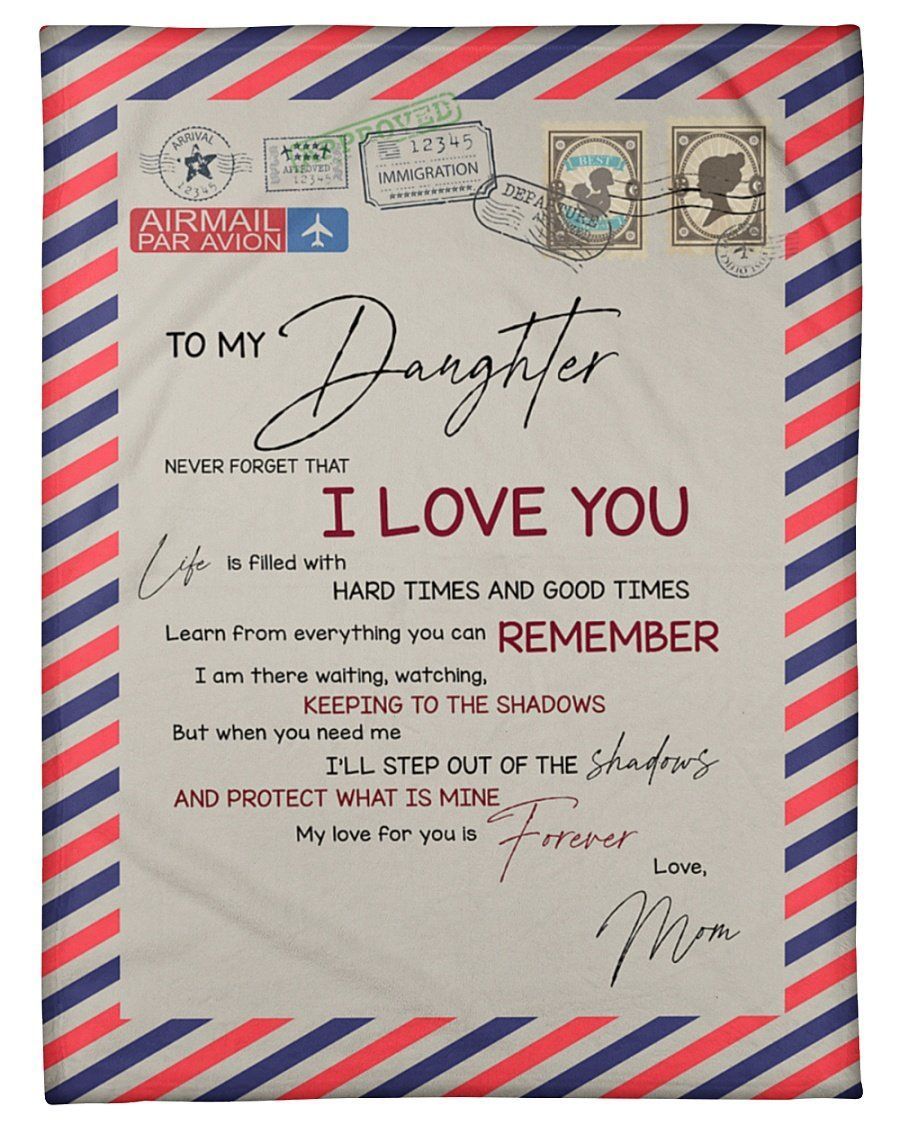 ARRIVAL
12345
APPROVED
12345
APPROVED
12345
IMMIGRATION
DEPARTURE
BEST
AIRMAIL
PAR AVION
TO MY Daughter
NEVER FORGET THAT
I LOVE YOU
Life is filled with
HARD TIMES AND GOOD TIMES
Learn from everything you can REMEMBER
I am there waiting, watching,
KEEPING TO THE SHADOWS
But when you need me
I'LL STEP OUT OF THE shadows
AND PROTECT WHAT IS MINE
My love for you is Forever
Love,
Mom